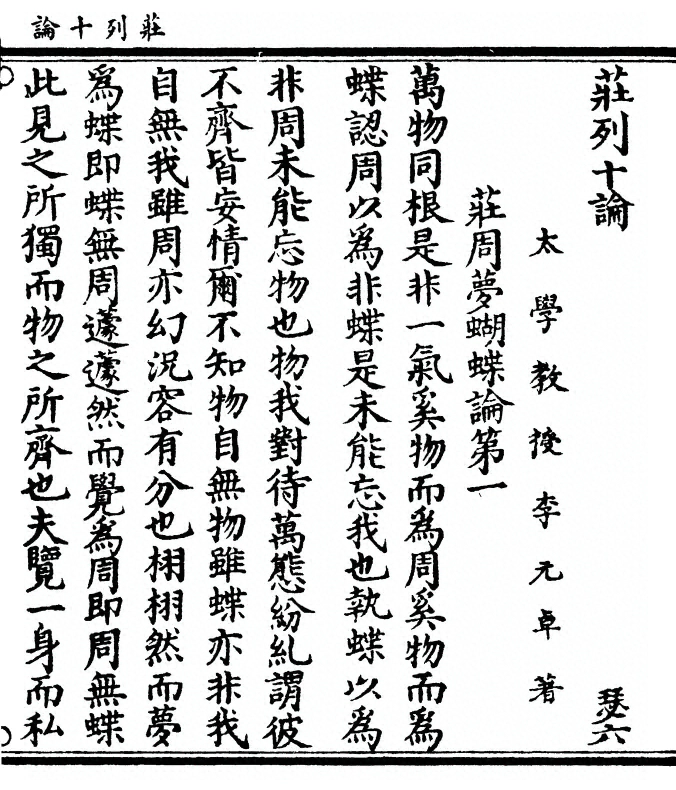 莊列十論
莊列十論 瑟六
太學教授李元卓著
莊周夢蝴蝶論第一
萬物同根是非一氣奚物而爲周奚物而爲
蝶認周以爲非蝶是未能忘我也執蝶以爲
非周未能忘物也物我對待萬態紛糺謂彼
不齊皆妄情爾不知物自無物雖蝶亦非我
自無我雖周亦幻況容有分也栩栩然而夢
爲蝶即蝶無周蘧蘧然而覺爲周即周無蝶
此見之所獨而物之所齊也夫覽一身而私